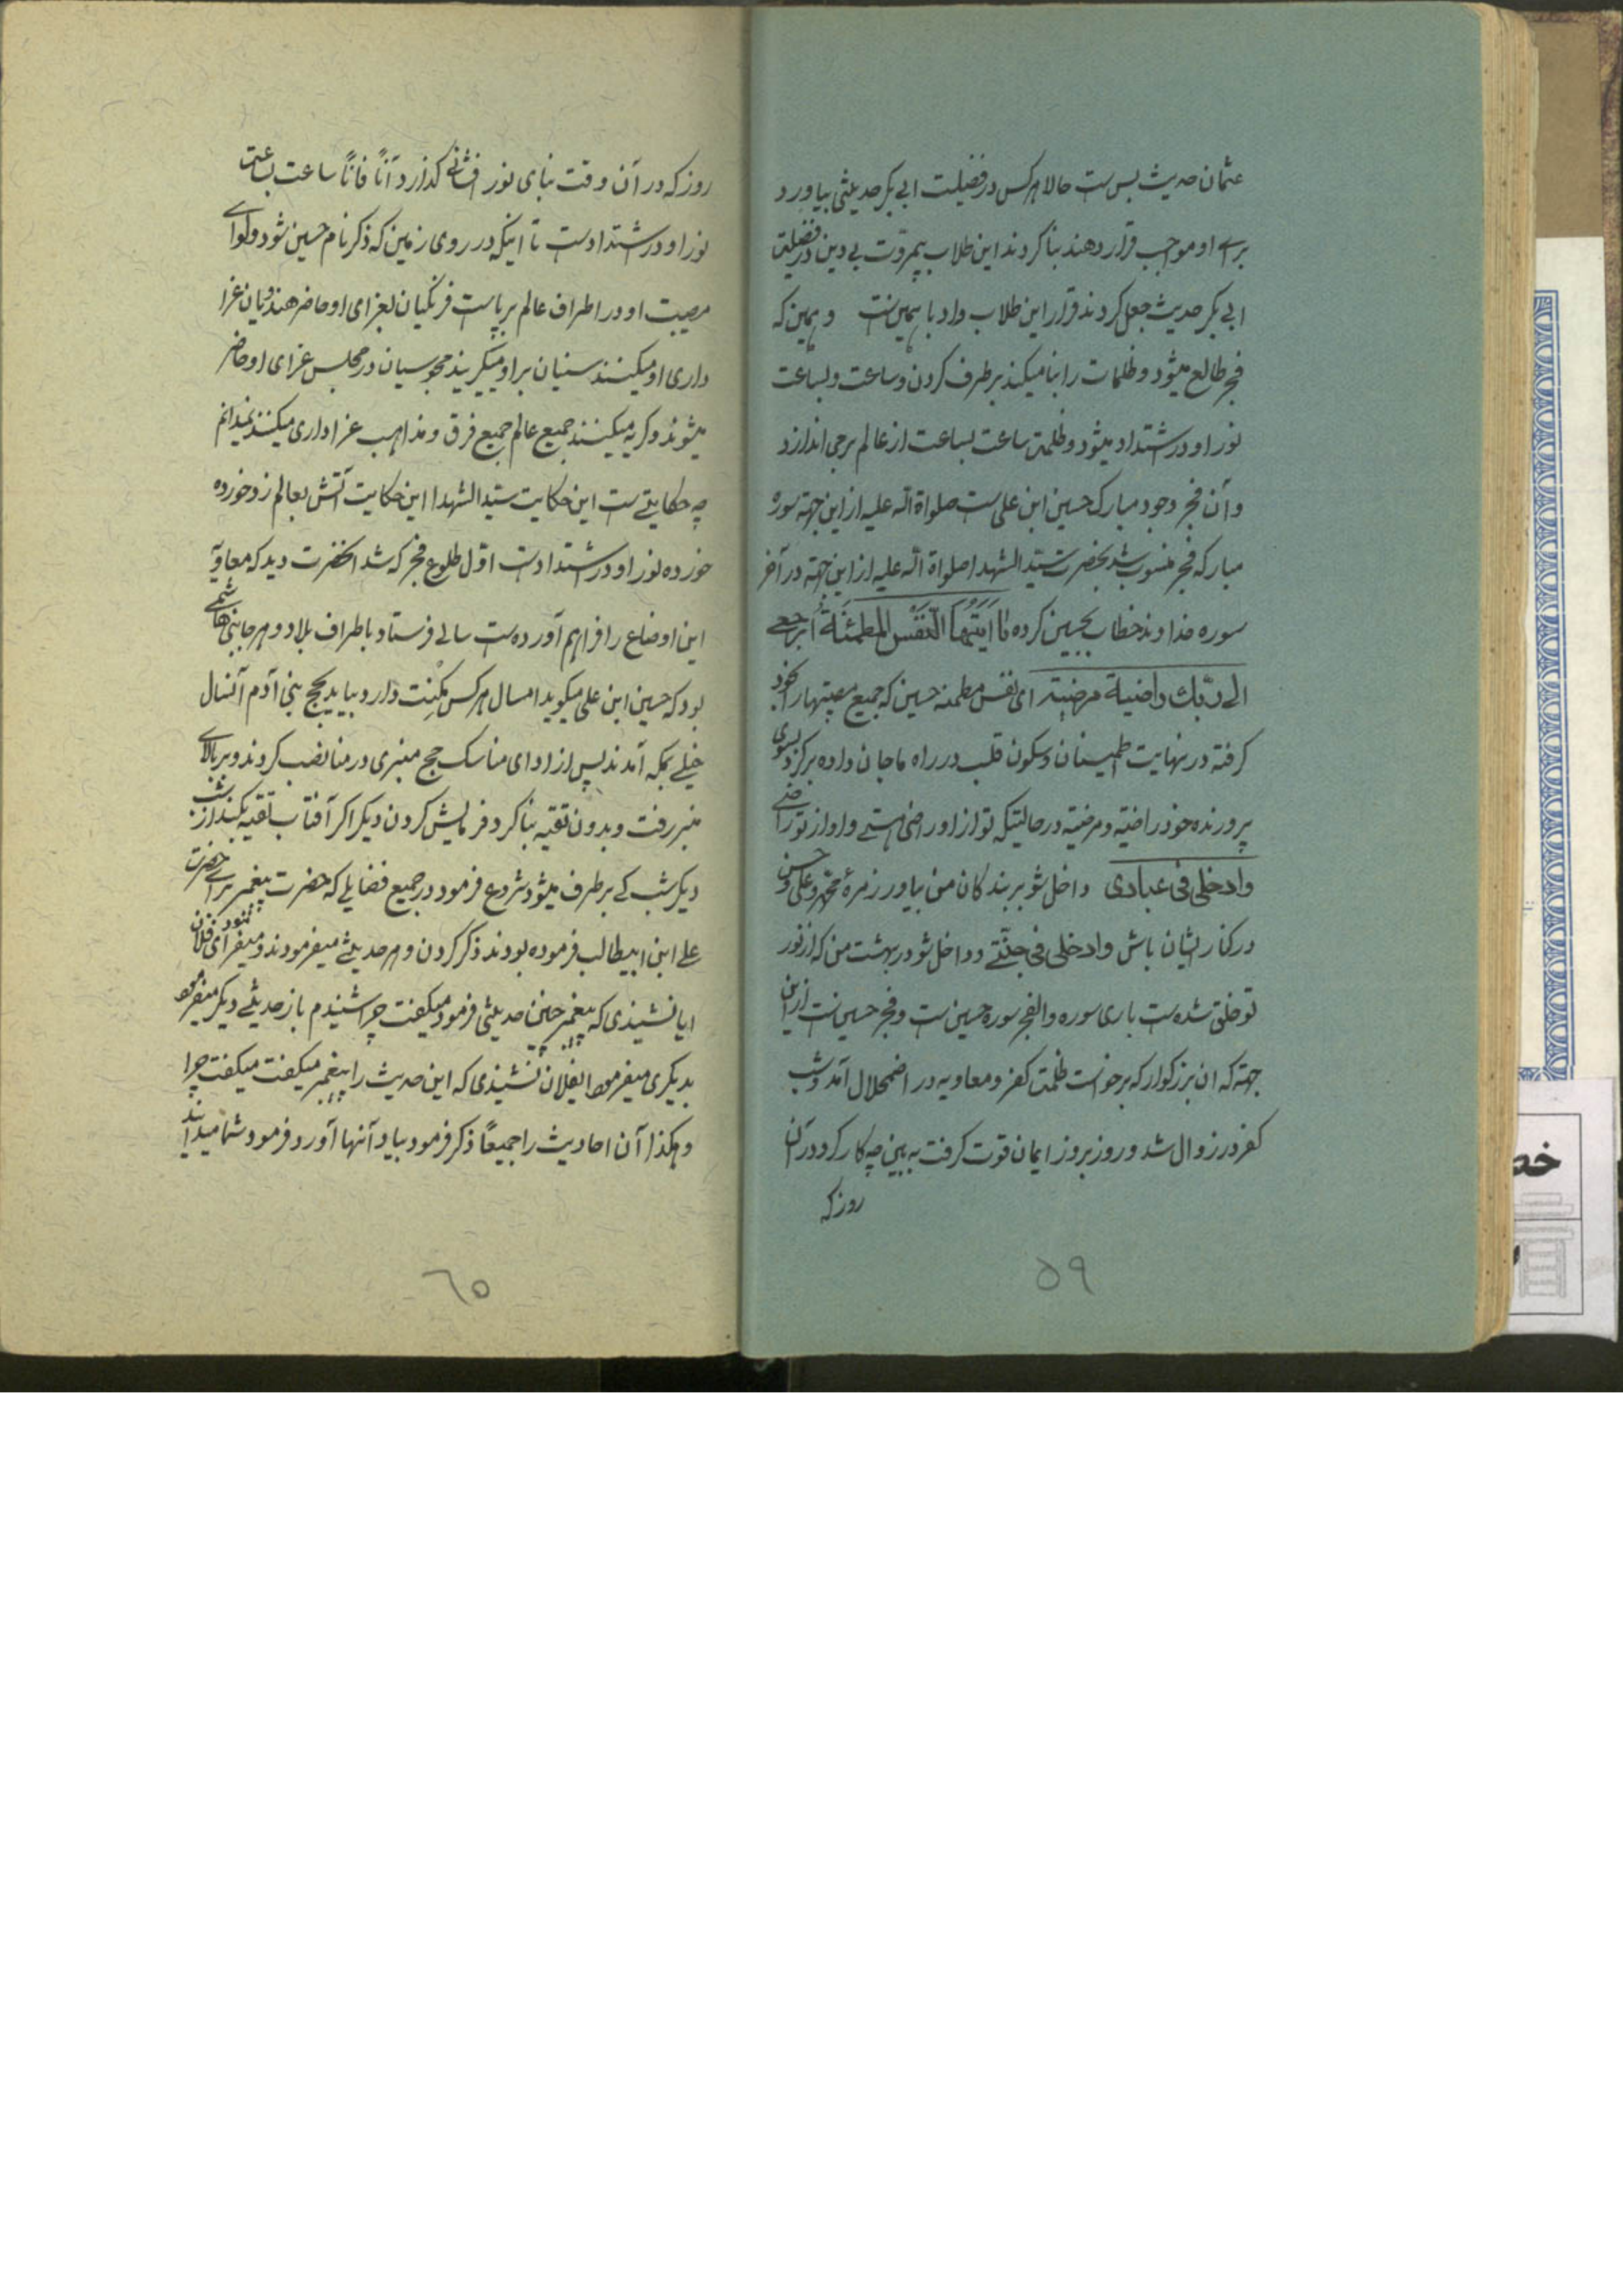 عثمان حدیث بس ست حالا هر کس در فضیلت ابی بکر حدیثی بیاورد
برای او مواجب قرار دهند بنا کردند این طلاب بیمروّت بی دین در فضیلت
ابی بکر حدیث جعل کردند قرار این طلاب داد باهمین ست و همین که
فجر طالع میشود و ظلمات را بنا میکند برطرف کردن و ساعت و بساعت
نور او در اشتداد میشود و ظلمت ساعت بساعت از عالم برمی اندازد
و آن فجر وجود مبارک حسین ابن علی ست صلواة الله علیه از این جهته سوره
مبارکه فجر منسوب شد بحضرت سیّد الشهدا صلواة الله علیه از این جهته در آخر
سوره خداوند خطاب بحسین کرده یا ایّتها النّفس المطمئنّة ارجعی
الی ربّک راضیة مرضیّة ای نفس مطمئنه حسین که جمیع مصیبتهارا بخود
گرفته در نهایت اطمینان و سکون قلب در راه ما جان داده برگرد بسوی
پرورنده خود راضیّه و مرضیّه در حالتیکه تو از او راضی هستی و او از تو راضی
وادخلی فی عبادی داخل شو بر بندگان من بیا در زمرهٔ محمّد و علی و حسن
در کنار ایشان باش وادخلی فی جنّتی و داخل شو در بهشت من که از نور
تو خلق شده ست باری سوره والفجر سورهٔ حسین ست و فجر حسین ست از این
جهته که ان بزرگوار که برخواست ظلمت کفر و معاویه در اضمحلال آمد و شب
کفر در زوال شد و روز بروز ایمان قوت گرفت به بین چه کار کرد در آن
روز که
۵۹
روز که در آن وقت بنای نور افشانی گذارد آناً فاناً ساعت بساعت
نور او در اشتداد ست تا اینکه در روی زمین که ذکر نام حسین شود و لوای
مصیبت او در اطراف عالم برپاست فرنگیان بعزای او حاضر هندویان عزا
داری او میکنند سنیان بر او میگریند مجوسیان در مجلس عزای او حاضر
میشوند و گریه میکنند جمیع عالم جمیع فرق و مذاهب عزاداری میکنند نمیدانم
چه حکایتی ست این حکایت سیّد الشهدا این حکایت آتش بعالم زد خورده
خورده نور او در اشتداد ست اوّل طلوع فجر که شد انحضرت دید که معاویه
این اوضاع را فراهم آورده ست سالی فرستاد باطراف بلاد و هر جا بنی هاشمی
بود که حسین ابن علی میگوید امسال هر کس مکنت دارد بیاید بحج بنی آدم آنسال
خیلی بمکه آمدند پس از ادای مناسک حج منبری در منا نصب کردند و بر بالای
منبر رفت و بدون تقیه بنا کرد فرمایش کردن دیگر اگر آفتاب تقیه بکند از شب
دیگر شب کی برطرف میشود شروع فرمود در جمیع فضایلی که حضرت پیغمبر برای حضرت
علی ابن ابیطالب فرموده بودند ذکر کردن و هر حدیثی میفرمودند و میفرمود ای فلان
ایا نشنیدی که پیغمبر چنین حدیثی فرمود میگفت چرا شنیدم باز حدیثی دیگر میفرمود
بدیگری میفرمود ایفلان نشنیدی که این حدیث را پیغمبر میگفت میگفت چرا
و هکذا آن احادیث را جمیعاً ذکر فرمود بیاد آنها آورد فرمود شما میدانید
٦٥
خص